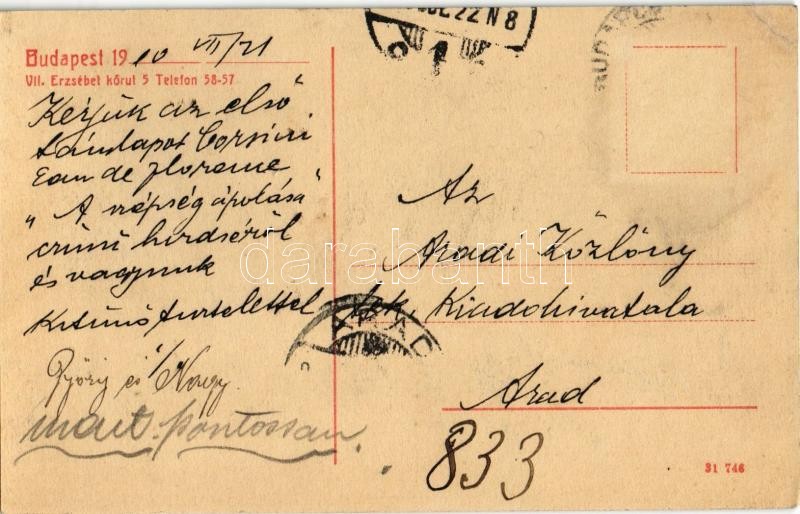 Budapest 1910 VII/21
VII. Erzsébet körut 5 Telefon 58-57
Kérjük az első
Corsini
Eau de florence
"A szépség ápolása"
című hirdséről
és vagyunk
Kitünő tisztelettel
Győry és Nagy
pontossan.
22 N 8
1
BUDAPE
Az
Aradi Közlöny
tek. Kiadohivatala
Arad
ARAD
833
31 746
darabanth